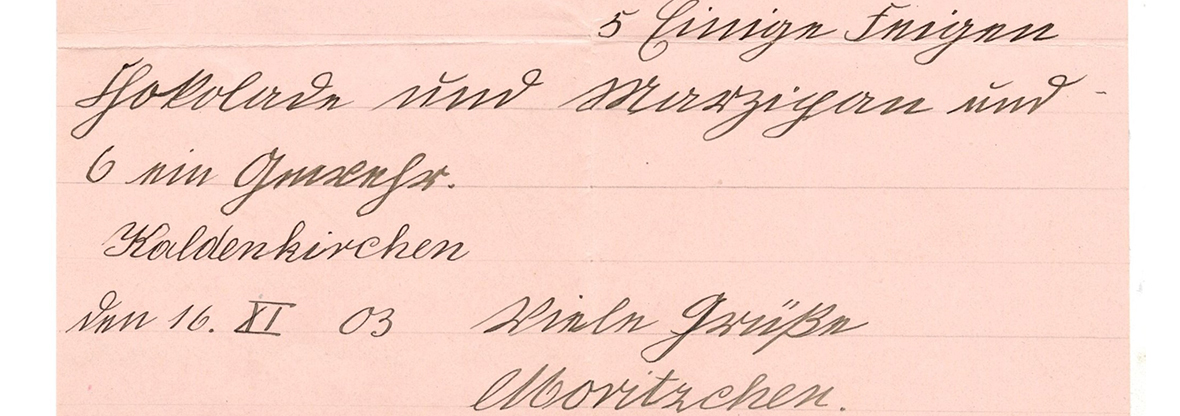 5 Einige Feigen
Schokolade und Marzipan und
6 ein Gewehr.
Kaldenkirchen
den 16. XI 03 Viele Grüße
Moritzchen.